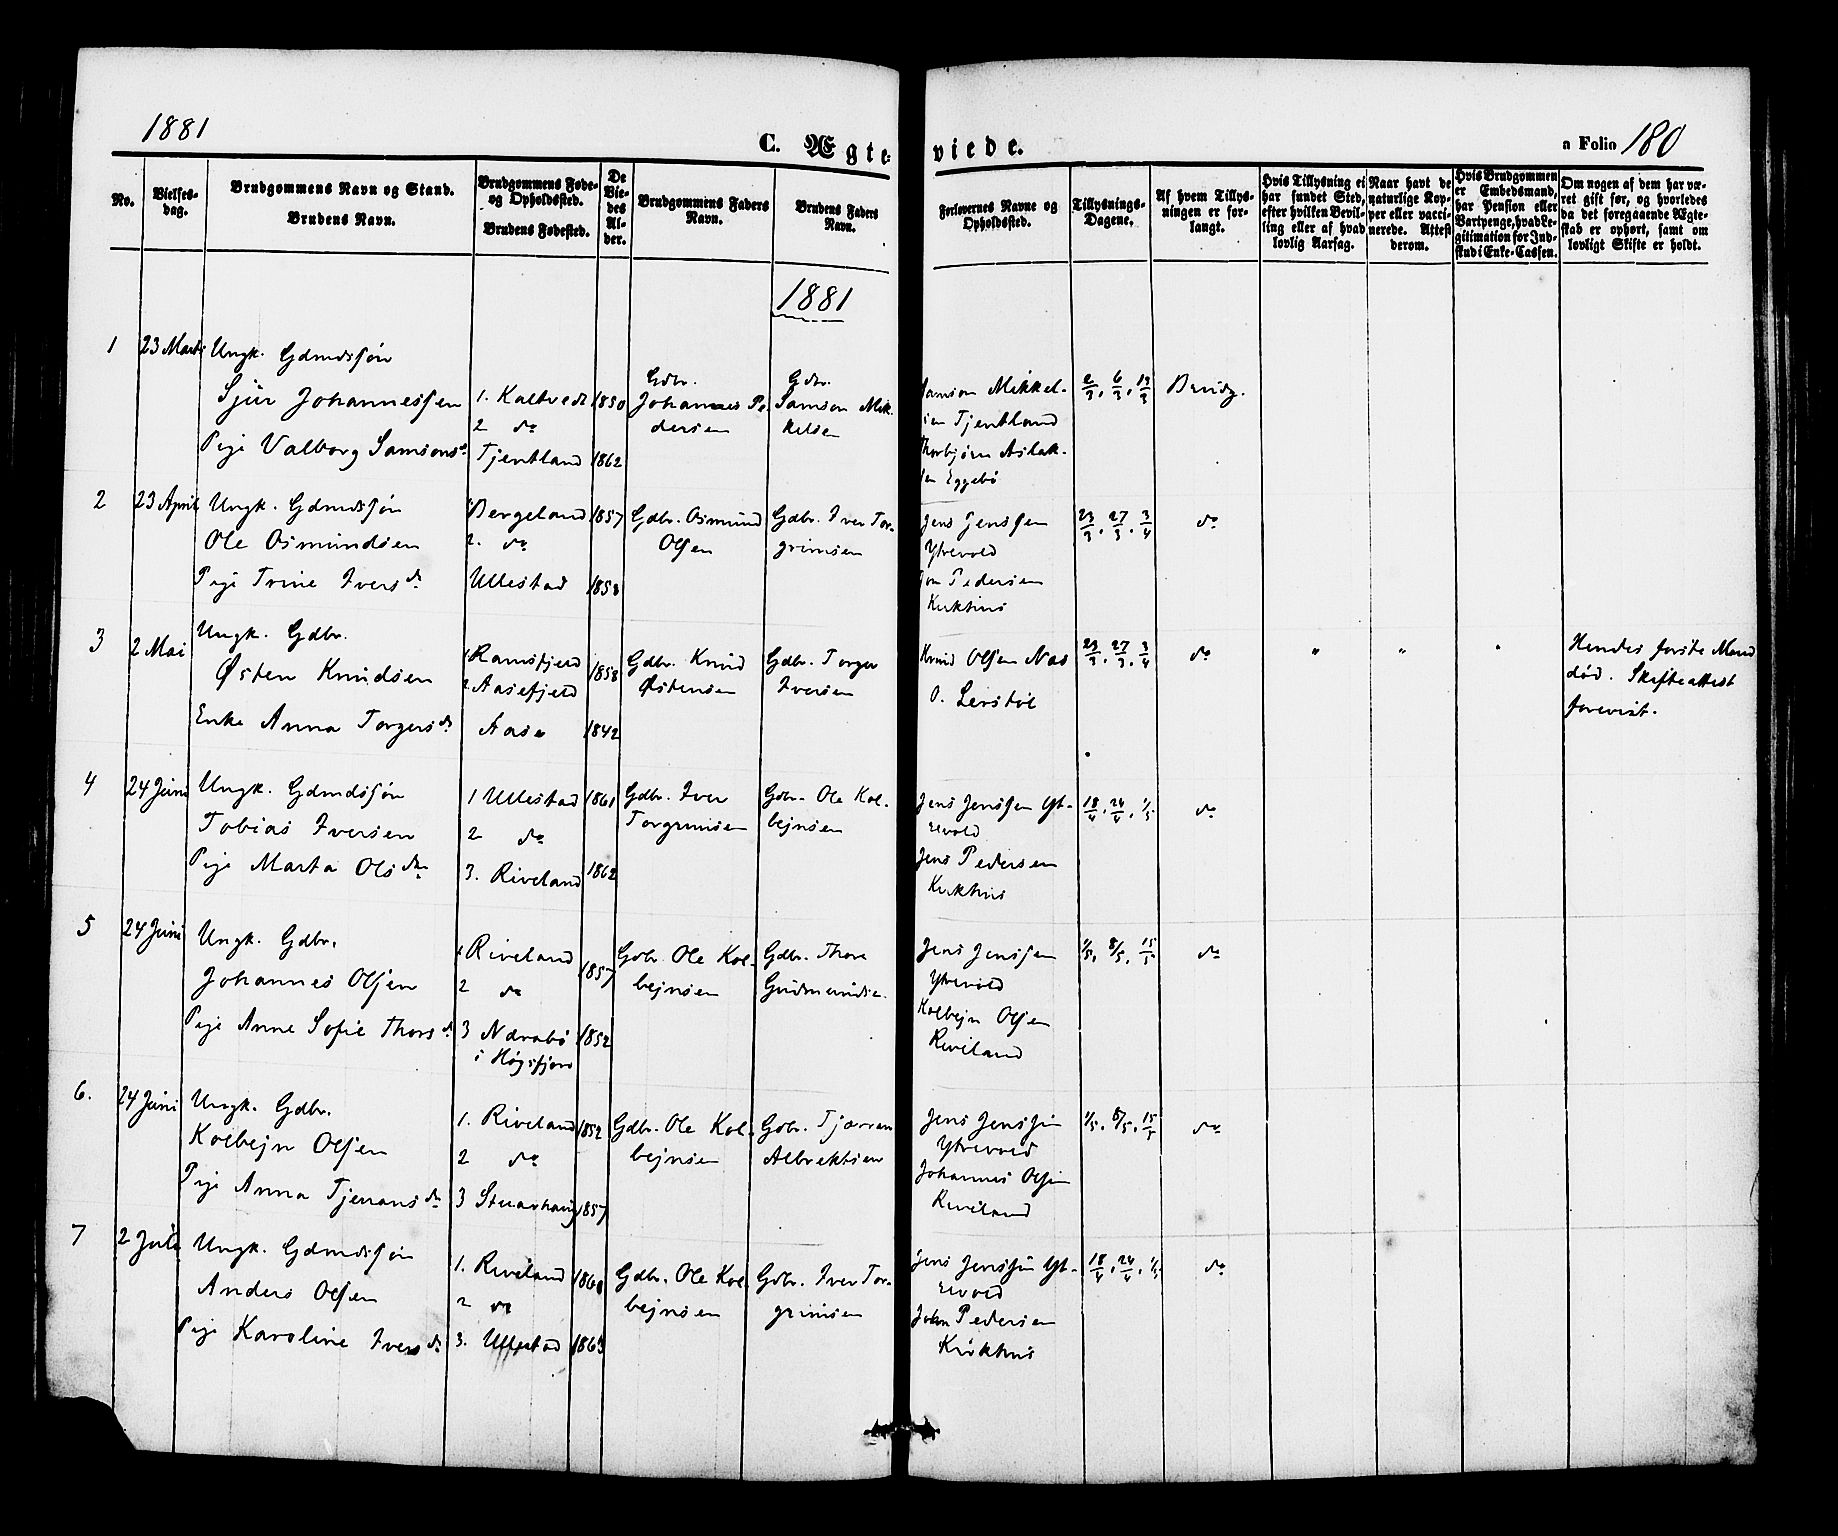 1881
C. Ægte-
viede.
a Folio 180
No.
Vielses-
dag.
Brudgommens Navn og Stand.
Brudens Navn.
Brudgommens Føde-
og Opholdssted.
Brudens Fødested.
De
Vie-
des
Al-
der.
Brudgommens Faders
Navn.
Brudens Faders
Navn.
Forlovernes Navne og
Opholdssted.
Tillysnings-
Dagene.
Af hvem Tillys-
ningen er for-
langt.
Hvis Tillysning ei
har fundet Sted,
efter hvilken Bevil-
ling eller af hvad
lovlig Aarsag.
Naar havt de
naturlige Kop-
per eller vacci-
nerede. Attest
derom.
Hvis Brudgommen
er Embedsmand,
har Pension eller
Vartpenge, hvad Le-
gitimation for Ind-
skud i Enke-Cassen.
Om nogen af dem har væ-
ret gift før, og hvorledes
da det foregaaende Ægte-
skab er ophørt, samt om
lovligt Skifte er holdt.
1881
1
23 Marts
Ungk. Gdmdssøn
Sjur Johannessen
Pige Valborg Samsonsd.
1. Kaltvedt
2 do
Tjentland
1850
1862
Gdbr.
Johannes Pe-
dersen
Gdbr.
Samson Mik-
kelsen
Samson Mikkel-
sen Tjentland
Thorbjørn Aslak-
sen Eggebø
2/3, 6/3, 13/3
Brudg.
2
23 April
Ungk. Gdmdssøn
Ole Osmundsen
Pige Trine Iversdr
Bergeland
2. do
Ullestad
1857
1858
Gdbr. Osmund
Olsen
Gdbr. Iver Tor-
grimsen
Jens Jenssen
Ytrevold
Jon Pedersen
Kirkhus
23/3, 27/3, 3/4
do
3
2 Mai
Ungk. Gdbr.
Østen Knudsen
Enke Anna Torgersdr
1 Ramsfjeld
2 Aasefjeld
Aase
1858
1842
Gdbr. Knud
Østensen
Gdbr. Torger
Iversen
Knud Olsen Nas
O. Lerstøl
23/3, 27/3, 3/4
do
"
"
"
Hendes første Mand
død. Skifteattest
forevist.
4
24 Juni
Ungk. Gdmdssøn
Tobias Iversen
Pige Marta Olsdr
1 Ullestad
2 do
3. Riveland
1861
1862
Gdbr. Iver
Torgrimsen
Gdbr. Ole Kol-
bejnsen
Jens Jenssen Yt-
revold
Jens Pedersen
Kirkhus
18/4, 24/4, 1/5
do
5
24 Juni
Ungk. Gdbr.
Johannes Olsen
Pige Anne Sofie Thorsd.
1 Riveland
2 do
3 Nærabø
i Høgsfjord
1857
1852
Gdbr. Ole Kol-
bejnsen
Gdbr. Thore
Gudmundse.
Jens Jenssen
Ytrevold
Kolbejn Olsen
Riveland
1/5, 8/5, 15/5
do
6.
24 Juni
Ungk. Gdbr.
Kolbejn Olsen
Pige Anna Tjeransdr
1. Riveland
2 do
3 Stuarhaug
1852
1857
Gdbr. Ole Kol-
bejnsen
Gdbr. Tjærran
Albrektsen
Jens Jenssen
Ytrevold
Johannes Olsen
Riveland
1/5, 8/5, 15/5
do
7
2 Juli
Ungk. Gdmdssøn
Anders Olsen
Pige Karoline Iversdr
1. Riveland
2 do
3. Ullestad
1860
1863
Gdbr. Ole Kol-
bejnsen
Gdbr. Iver Tor-
grimsen
Jens Jenssen Yt-
revold
John Pedersen
Kirkhus
18/4, 24/4, 1/5
do